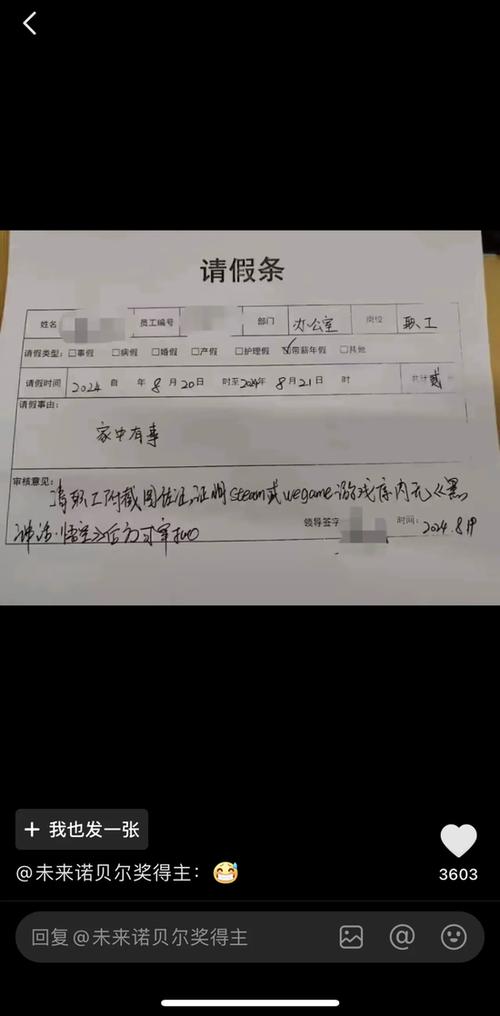 请假条
姓名 员工编号 部门 办公室 岗位 职工
请假类型：□事假 □病假 □婚假 □产假 □护理假 ☑带薪年假 □其他
请假时间 2024 自 年 8 月 20 日 时至 2024年 8 月 21 日 时 共计 贰
请假事由：
家中有事
审核意见：请职工附截图佐证，证明steam或wegame游戏库内无《黑
神话·悟空》后方可审批
领导签字 时间：2024.8.19
+ 我也发一张
@未来诺贝尔奖得主：😅
3603
回复@未来诺贝尔奖得主